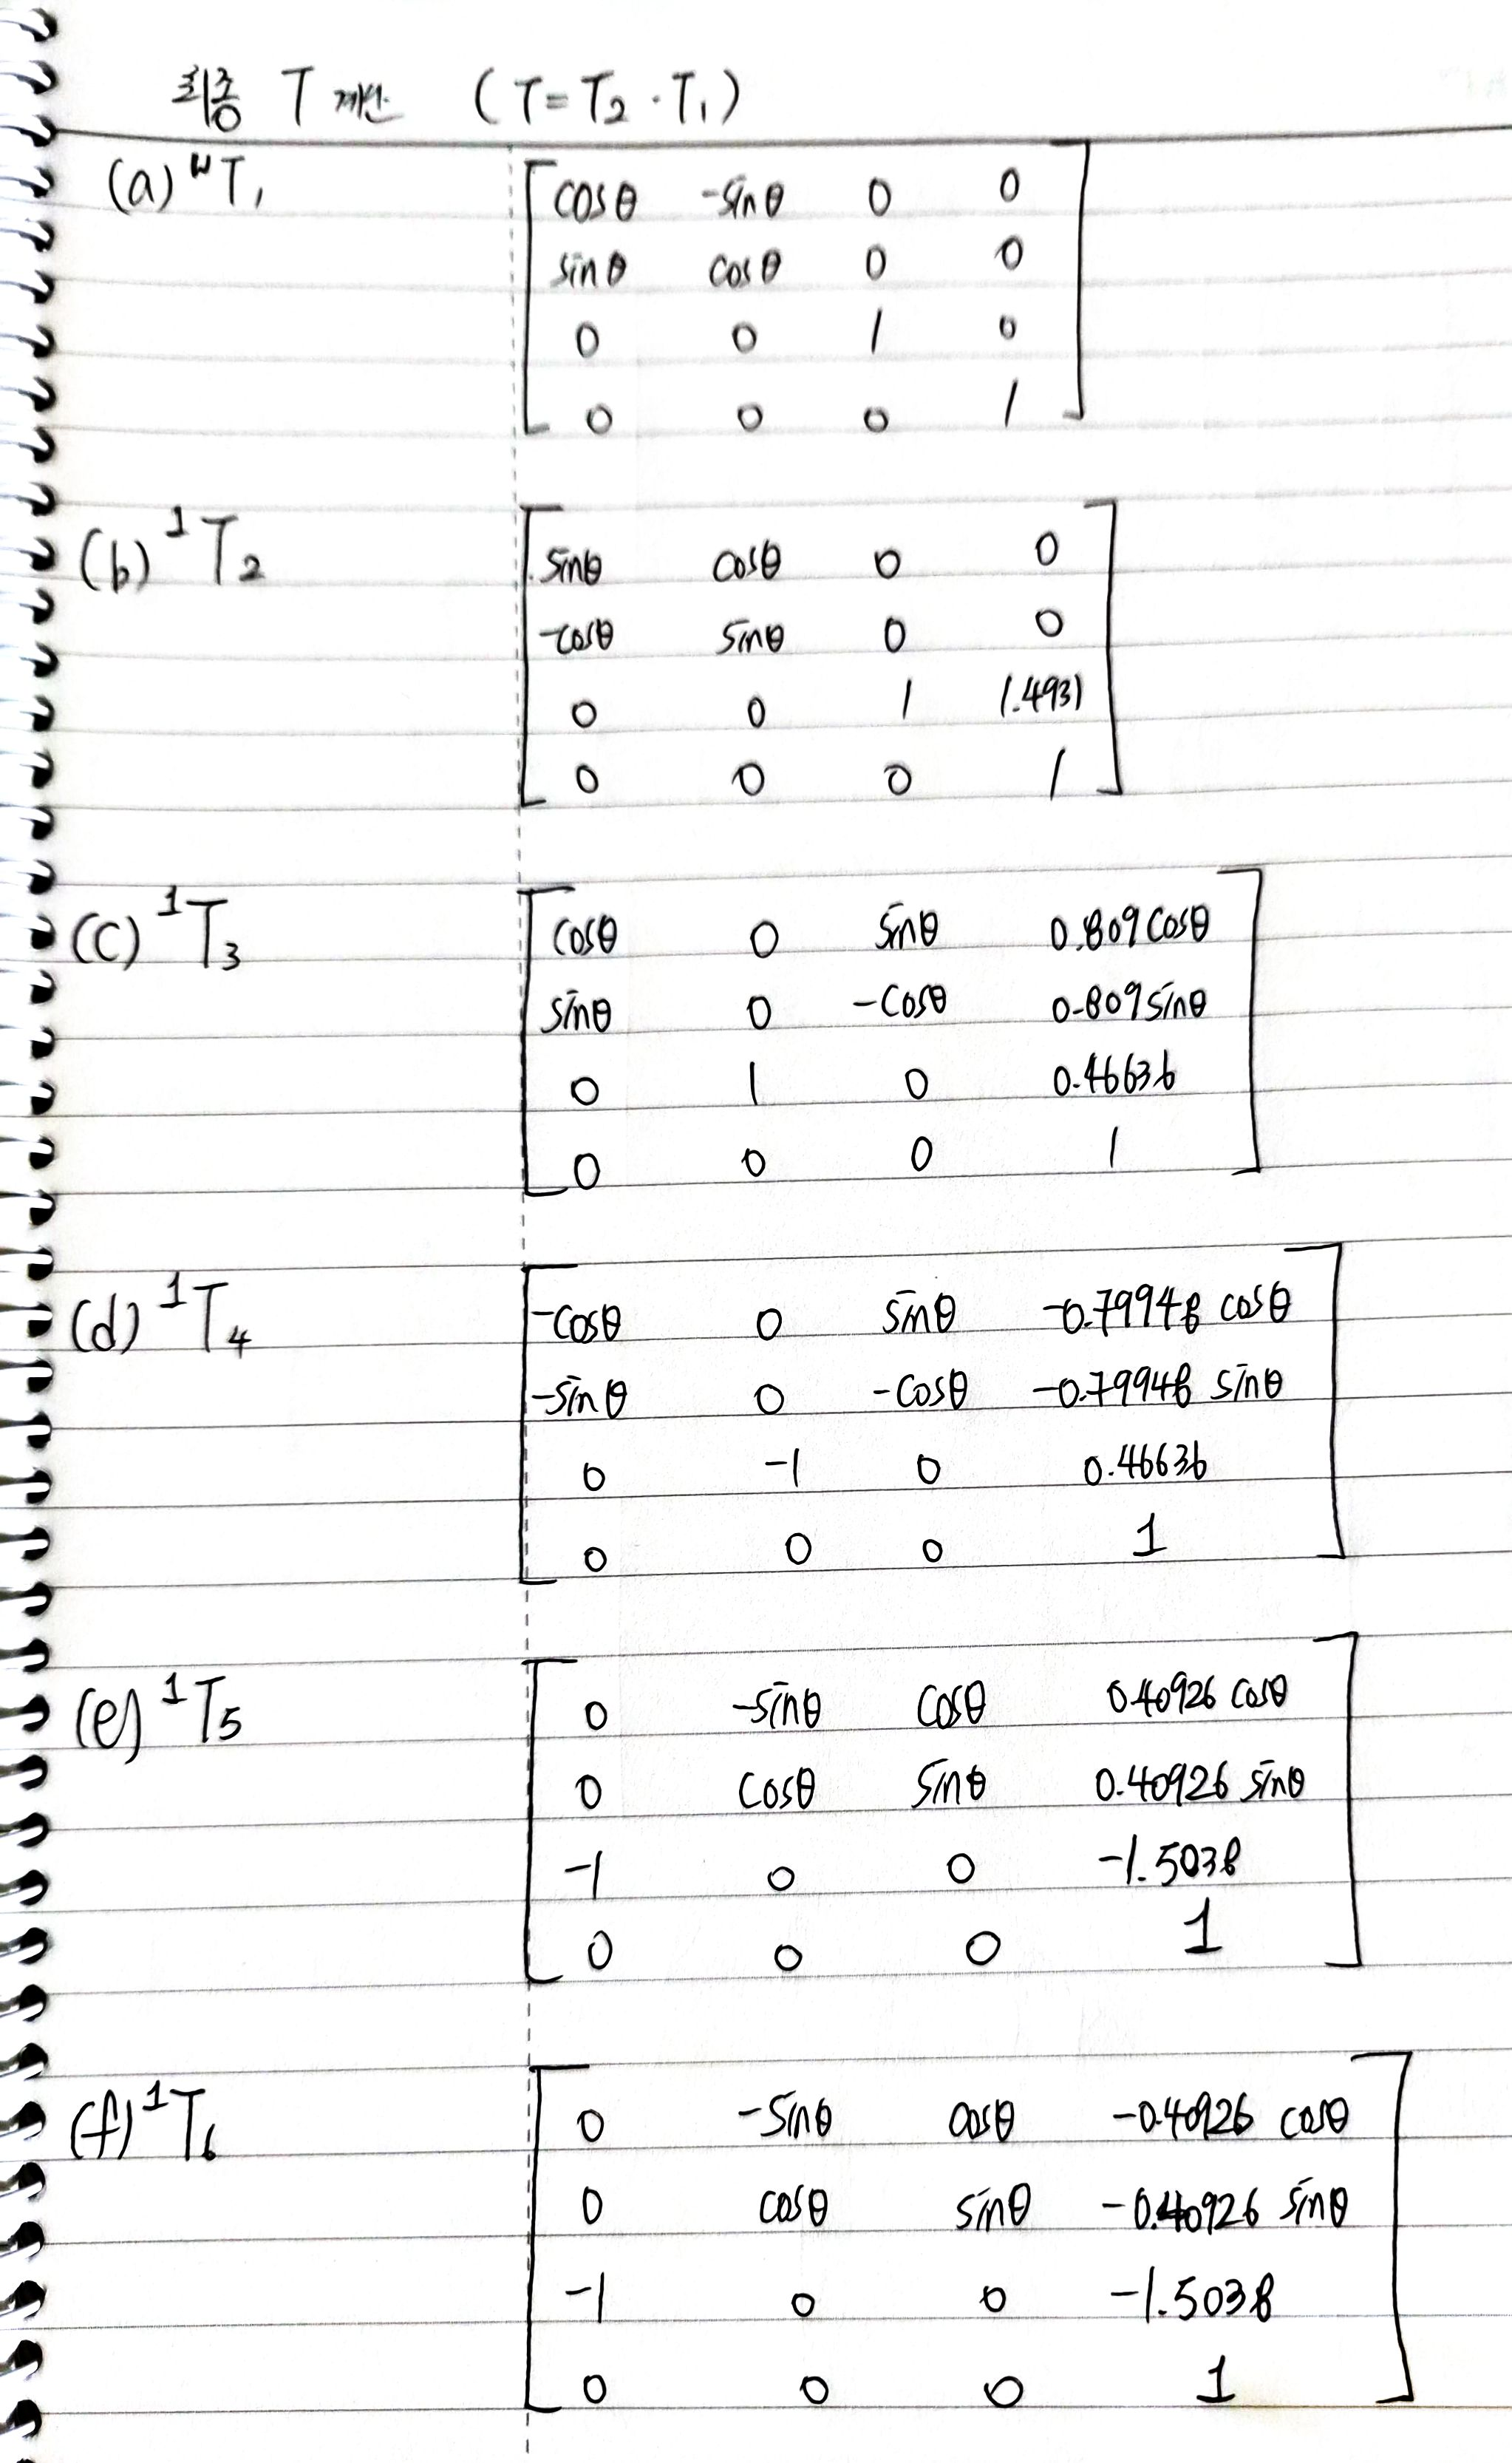 최종 T 계산 (T = T₂ · T₁)
(a) ᵂT₁
cosθ -sinθ 0 0
sinθ cosθ 0 0
0 0 1 0
0 0 0 1
(b) ¹T₂
sinθ cosθ 0 0
-cosθ sinθ 0 0
0 0 1 1.4931
0 0 0 1
(c) ¹T₃
cosθ 0 sinθ 0.809cosθ
sinθ 0 -cosθ 0.809sinθ
0 1 0 0.46636
0 0 0 1
(d) ¹T₄
-cosθ 0 sinθ -0.79948 cosθ
-sinθ 0 -cosθ -0.79948 sinθ
0 -1 0 0.46636
0 0 0 1
(e) ¹T₅
0 -sinθ cosθ 0.40926 cosθ
0 cosθ sinθ 0.40926 sinθ
-1 0 0 -1.5038
0 0 0 1
(f) ¹T₆
0 -sinθ cosθ -0.40926 cosθ
0 cosθ sinθ -0.40926 sinθ
-1 0 0 -1.5038
0 0 0 1